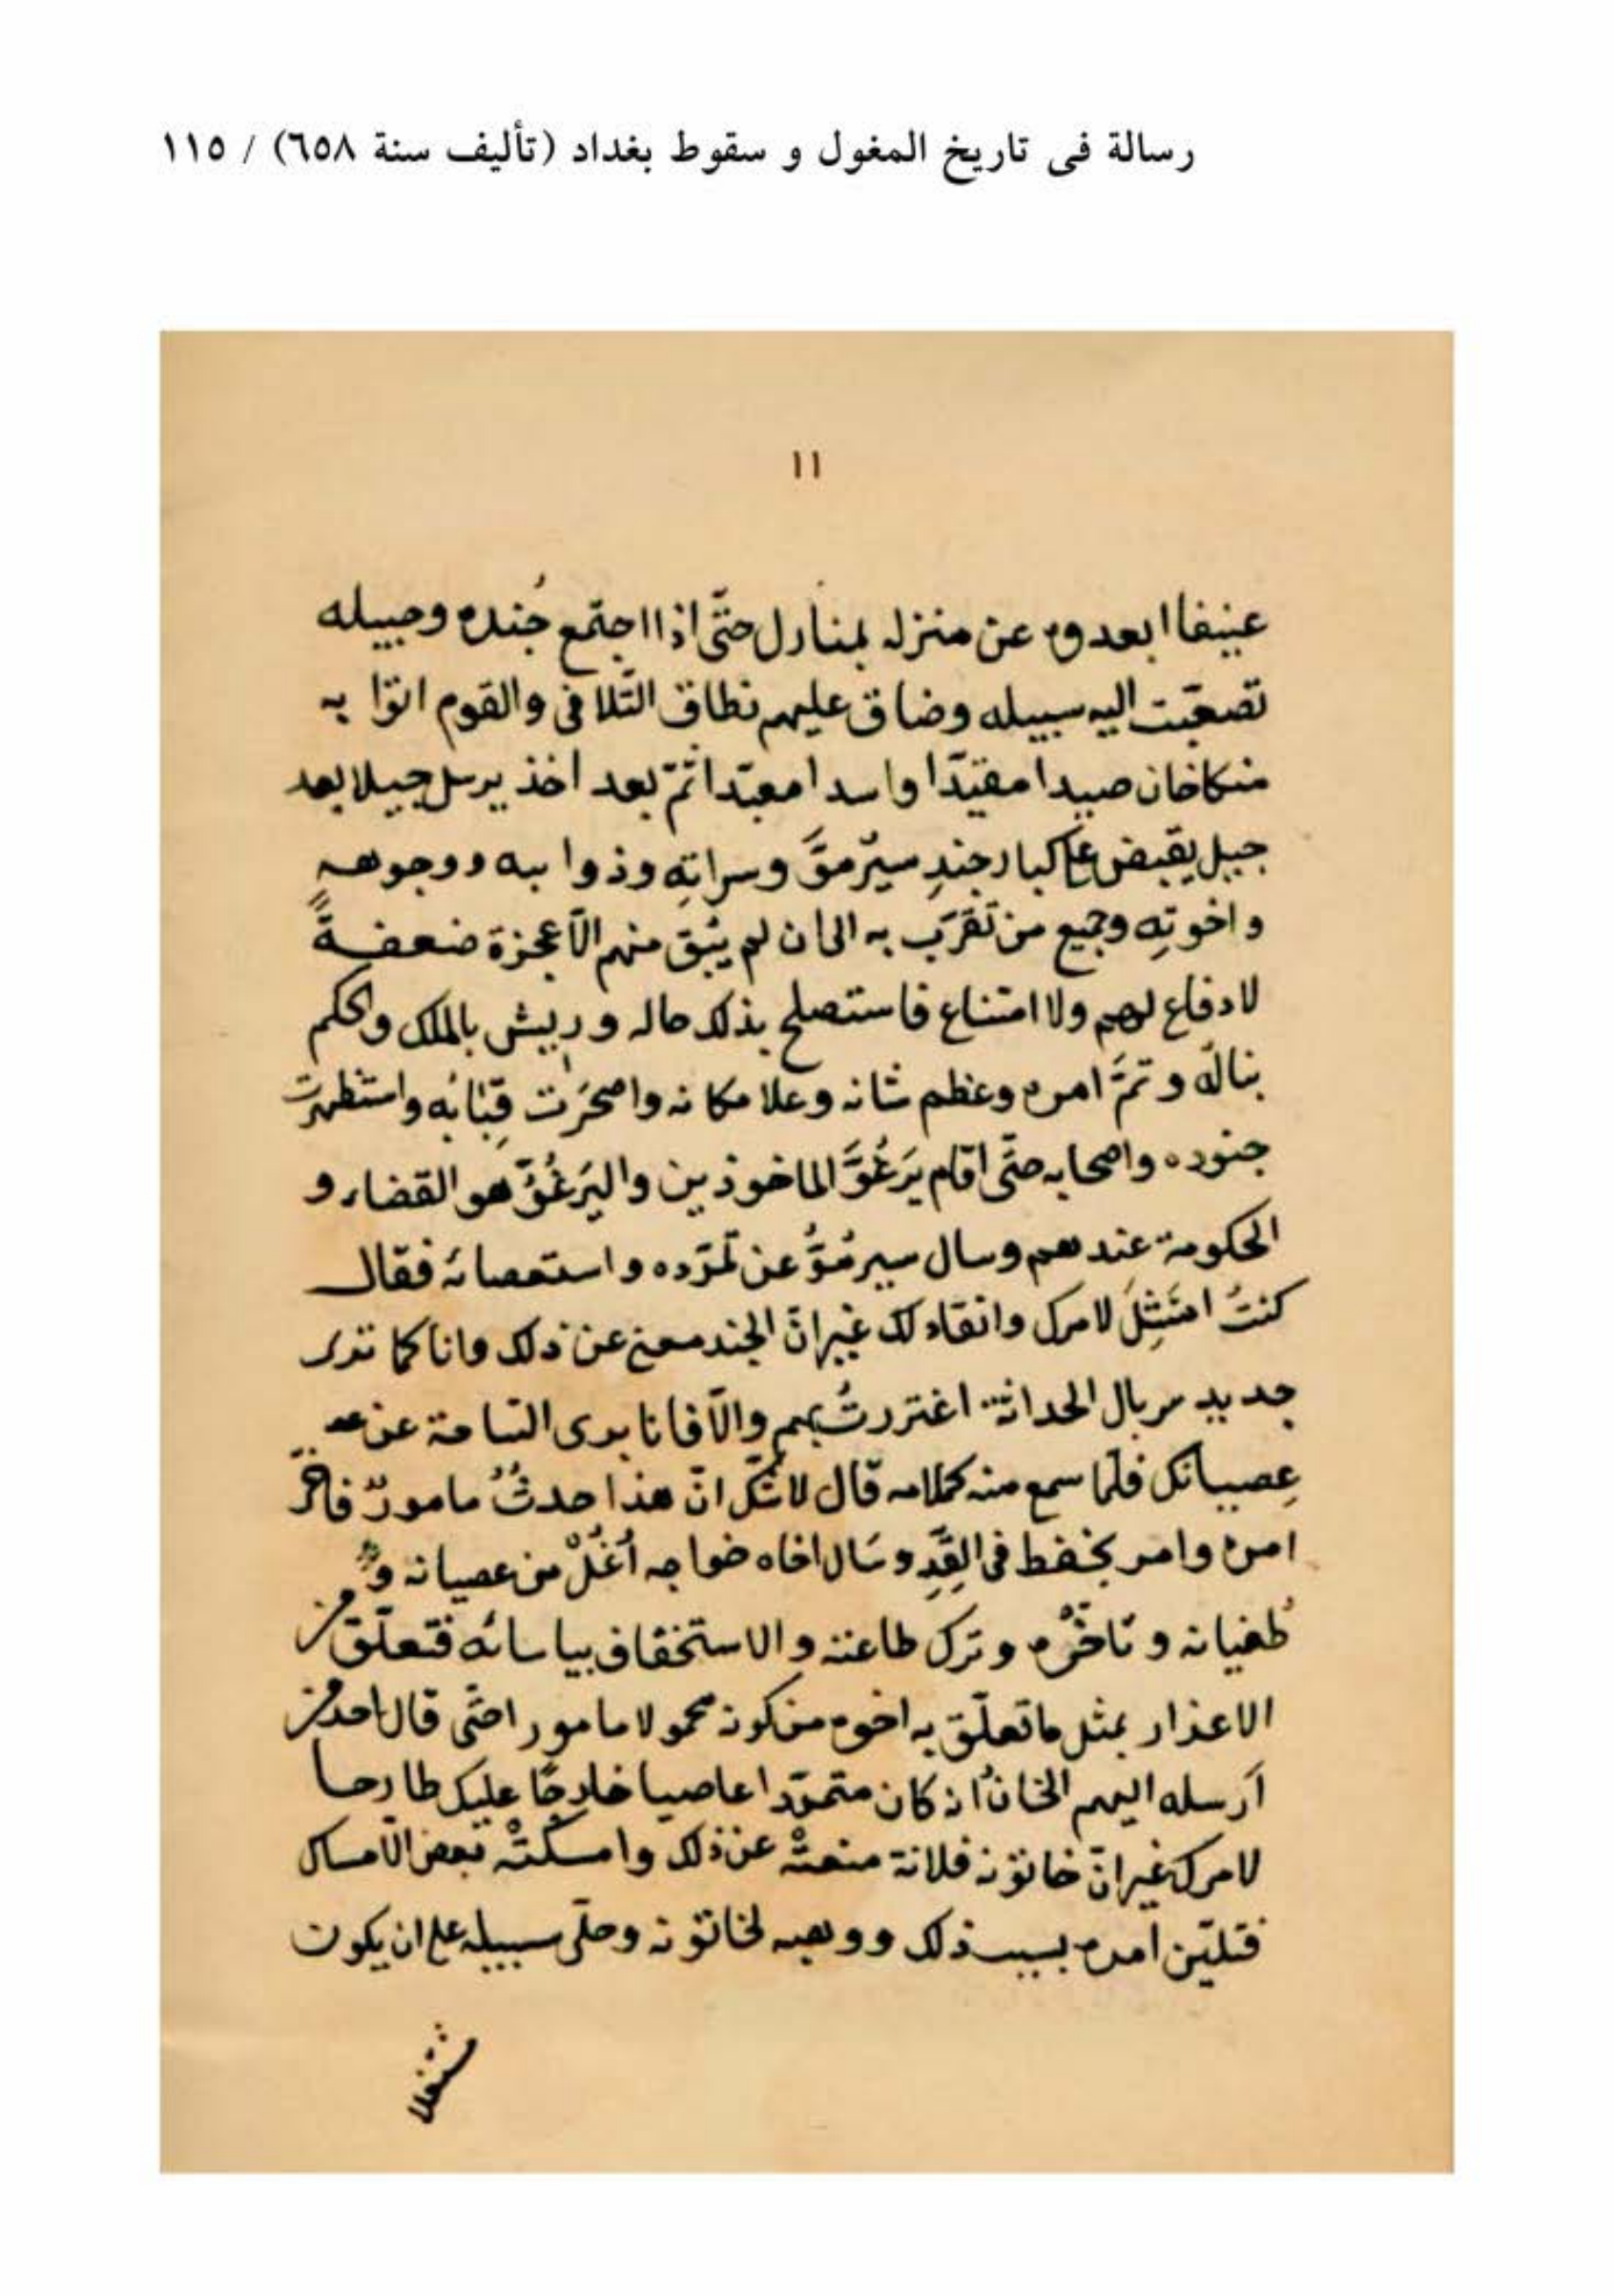 رسالة فى تاريخ المغول و سقوط بغداد (تأليف سنة ٦٥٨) / ١١٥
١١
عنيفا ابعدوه عن منزله بمنازل حتّى اذا اجتمع جُنده وجيبله
تصعّبت اليه سبيله وضاق عليهم نطاق التّلافى والقوم اتوا به
منكاخان صيدا مقيّدا واسدا معبّدا ثمّ بعد اخذ يرسل جيبلا بعد
جيبل يقبض على كبار جندِ سيرموَّ وسراتِهِ وذوا به ووجوهه
واخوتِهِ وجميع من تَقَرَّب به الى ان لم يَبْق منهم الّا عجزة ضعفةً
لا دفاع لهم ولا امتناع فاستصلح بذلك حاله وريش بالملك والحكم
نباله وتمَّ امره وعظم شانه وعلا مكانه واصحَرَت قِبَابُه واستظهرت
جنوده واصحابه حتّى اقام يَرَغُوَّ الماخوذين واليَرَغُوُّ هو القضاء و
الحكومة عندهم وسال سيرمُوَّ عن تمرّده واستعصائه فقال
كنتُ امتَثِلَ لامرك وانقاد لك غير انّ الجند منعنى عن ذلك وانا كما ترى
جديد سربال الحداثة اغتررتُ بهم والّا فانا برى الساحة عن
عِصيانك فلمّا سمع منه كلامه قال لا شكّ انّ هذا حدثٌ مامورٌ فاخّر
امره وامر بحفظ فى القِدِّ وسَال اخاه خواجه اُغُلْ من عصيانه و
طُغيانه وتاخّره وترك طاعته والاستخفاف بياسائه فتعلّق من
الاعذار بمثل ما تعلّق به اخوه من كونه محمولا مامورا حتّى قال احد من
اَرسله اليهم الخانُ انه كان متمرّدا عاصيا خارجًا عليك طارحا
لامرك غير انّ خاتونه فلانة منعتْه عن ذلك وامسكتْه بعض الامساك
فتليّن امره بسبب ذلك ووهبه لخاتونه وخلّى سبيله على ان يكون